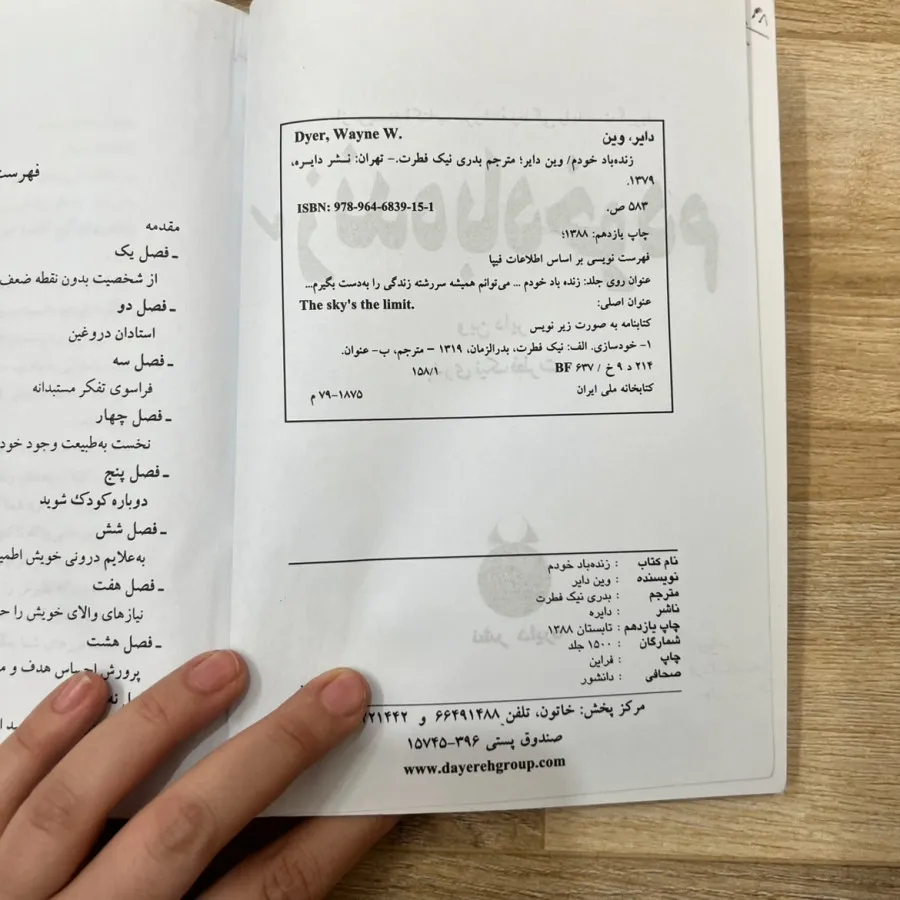 Dyer, Wayne W. دایر، وین
زنده‌باد خودم/ وین دایر؛ مترجم بدری نیک فطرت.– تهران: نشر دایره،
۱۳۷۹.
۵۸۳ ص. ISBN: 978-964-6839-15-1
چاپ یازدهم: ۱۳۸۸؛
فهرست نویسی بر اساس اطلاعات فیپا
عنوان روی جلد: زنده باد خودم ... می‌توانم همیشه سررشته زندگی را به‌دست بگیرم...
عنوان اصلی: The sky's the limit.
کتابنامه به صورت زیر نویس
۱- خودسازی. الف: نیک فطرت، بدرالزمان، ۱۳۱۹ – مترجم، ب- عنوان.
۲۱۴ د ۹ خ / BF ۶۳۷ ۱۵۸/۱
کتابخانه ملی ایران ۱۸۷۵-۷۹ م
نام کتاب : زنده‌باد خودم
نویسنده : وین دایر
مترجم : بدری نیک فطرت
ناشر : دایره
چاپ یازدهم : تابستان ۱۳۸۸
شمارگان : ۱۵۰۰ جلد
چاپ : قراین
صحافی : دانشور
مرکز پخش: خاتون، تلفن ۶۶۴۹۱۴۸۸ و ۷۲۱۴۴۲
صندوق پستی ۳۹۶-۱۵۷۴۵
www.dayerehgroup.com
فهرست
مقدمه
ـ فصل یک
از شخصیت بدون نقطه ضعف
ـ فصل دو
استادان دروغین
ـ فصل سه
فراسوی تفکر مستبدانه
ـ فصل چهار
نخست به‌طبیعت وجود خود
ـ فصل پنج
دوباره کودک شوید
ـ فصل شش
به‌علایم درونی خویش
ـ فصل هفت
نیازهای والای خویش را
ـ فصل هشت
پرورش احساس هدف و